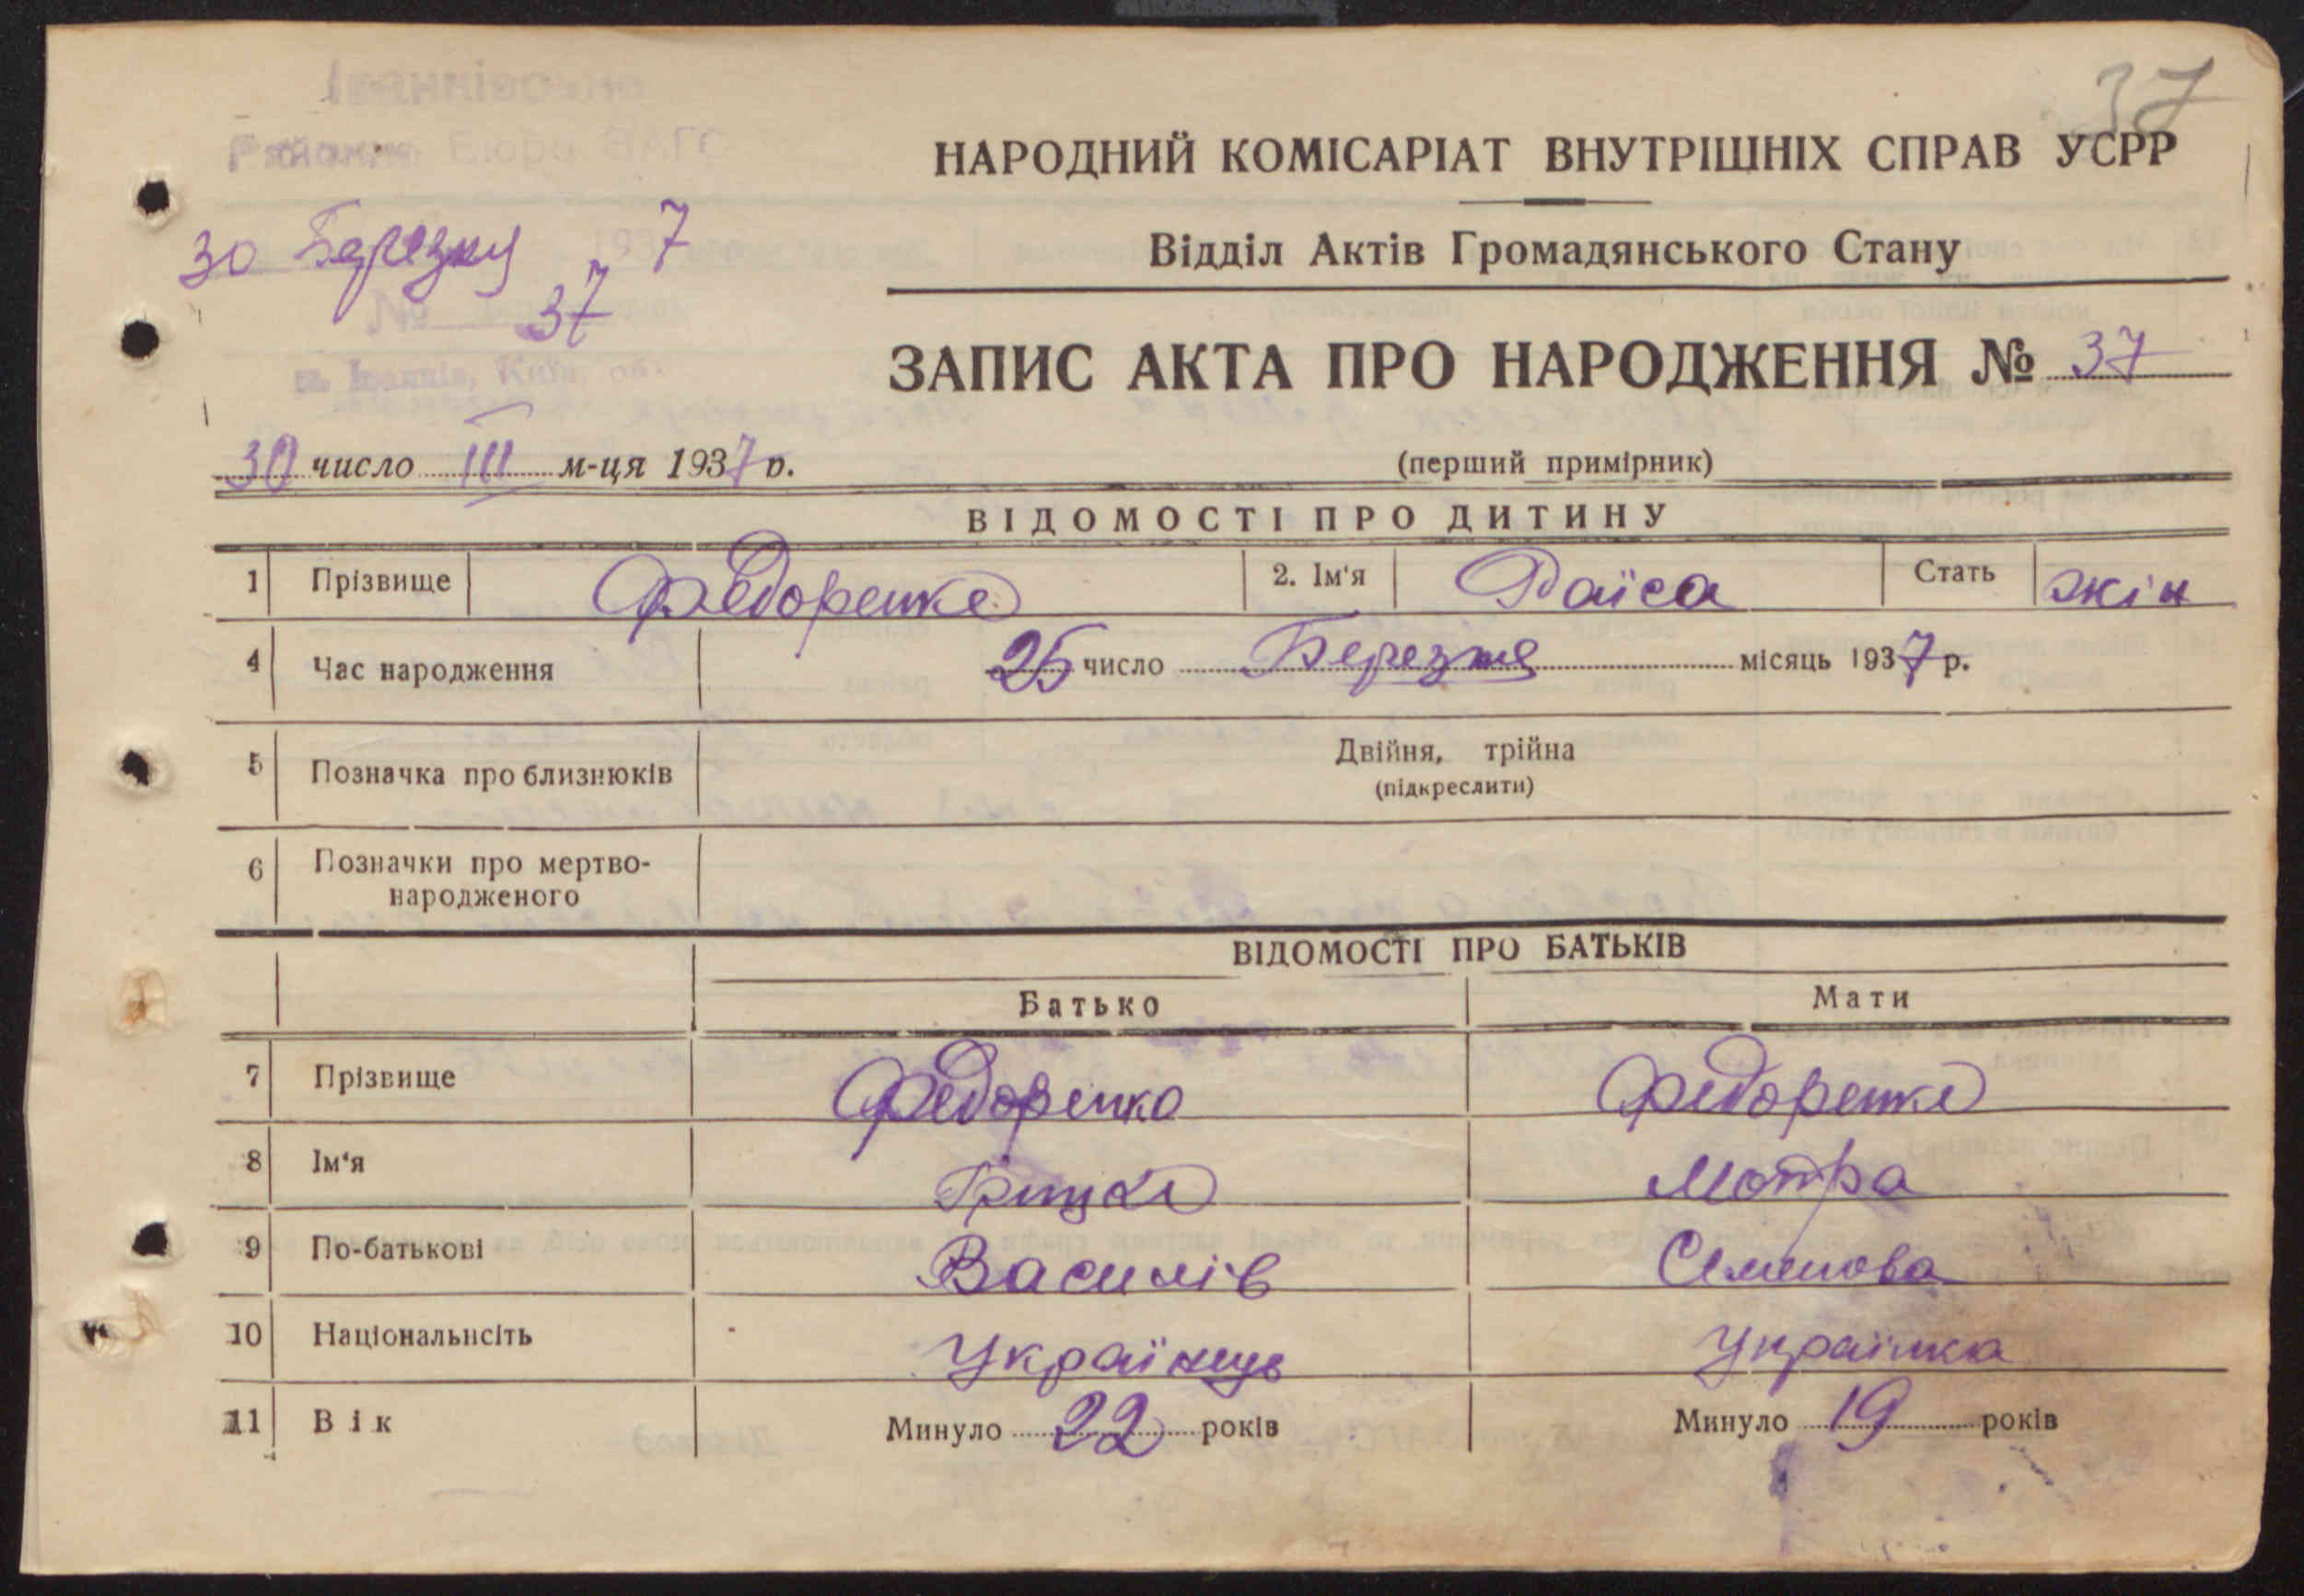 37
Іваннівське
Районне Бюро ЗАГС
НАРОДНИЙ КОМІСАРІАТ ВНУТРІШНІХ СПРАВ УСРР
Відділ Актів Громадянського Стану
30 Березня 1937
№ 37
м. Іваннів, Київ. обл.
ЗАПИС АКТА ПРО НАРОДЖЕННЯ № 37
30 число III м-ця 1937 р. (перший примірник)
ВІДОМОСТІ ПРО ДИТИНУ
1 Прізвище Федоренко 2. Ім'я Раїса Стать жін
4 Час народження 25 число Березня місяць 1937 р.
5 Позначка про близнюків Двійня, трійна
(підкреслити)
6 Позначки про мертво-
народженого
ВІДОМОСТІ ПРО БАТЬКІВ
Батько Мати
7 Прізвище Федоренко Федоренко
8 Ім'я Грицко Мотря
9 По-батькові Василів Семенова
10 Національнсіть Українець Українка
11 Вік Минуло 22 років Минуло 19 років